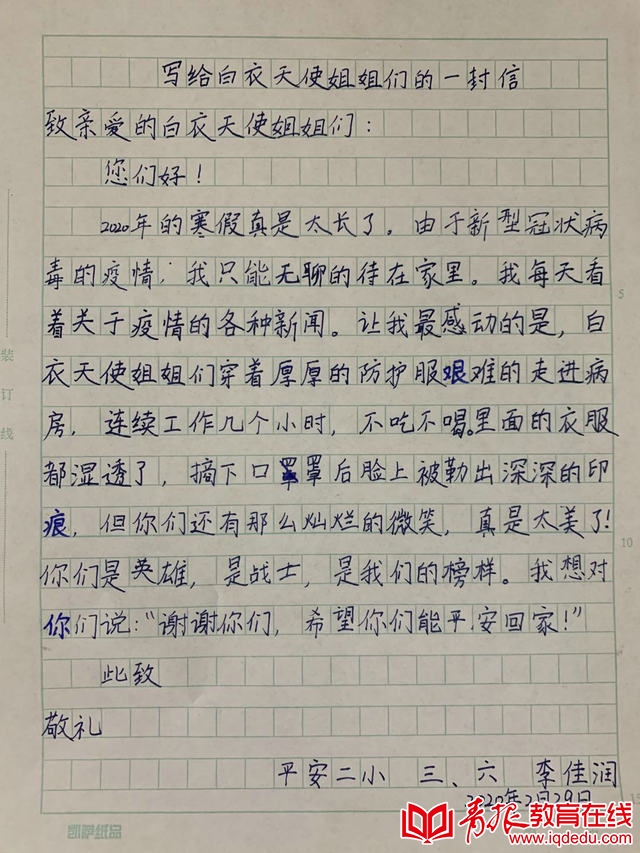 写给白衣天使姐姐们的一封信
致亲爱的白衣天使姐姐们：
您们好！
2020年的寒假真是太长了。由于新型冠状病
毒的疫情，我只能无聊的待在家里。我每天看
着关于疫情的各种新闻。让我最感动的是，白
衣天使姐姐们穿着厚厚的防护服艰难的走进病
房，连续工作几个小时，不吃不喝。里面的衣服
都湿透了，摘下口罩后脸上被勒出深深的印
痕，但你们还有那么灿烂的微笑，真是太美了！
你们是英雄，是战士，是我们的榜样。我想对
你们说：“谢谢你们，希望你们能平安回家！”
此致
敬礼
平安二小 三、六 李佳润
2020年2月29日
装订线
5
10
15
凯萨纸品
青报教育在线
www.iqdedu.com